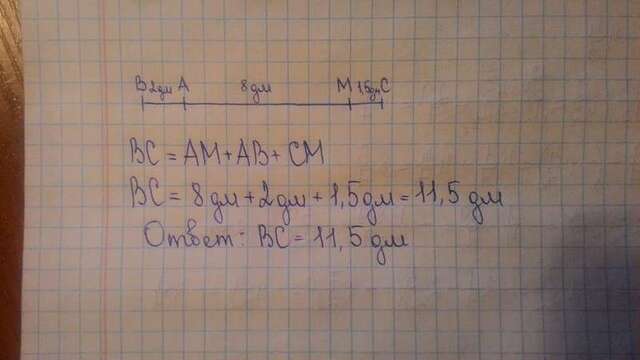 B 2дм A 8дм M 1,5дм C
BC = AM + AB + CM
BC = 8 дм + 2 дм + 1,5 дм = 11,5 дм
Ответ: BC = 11,5 дм